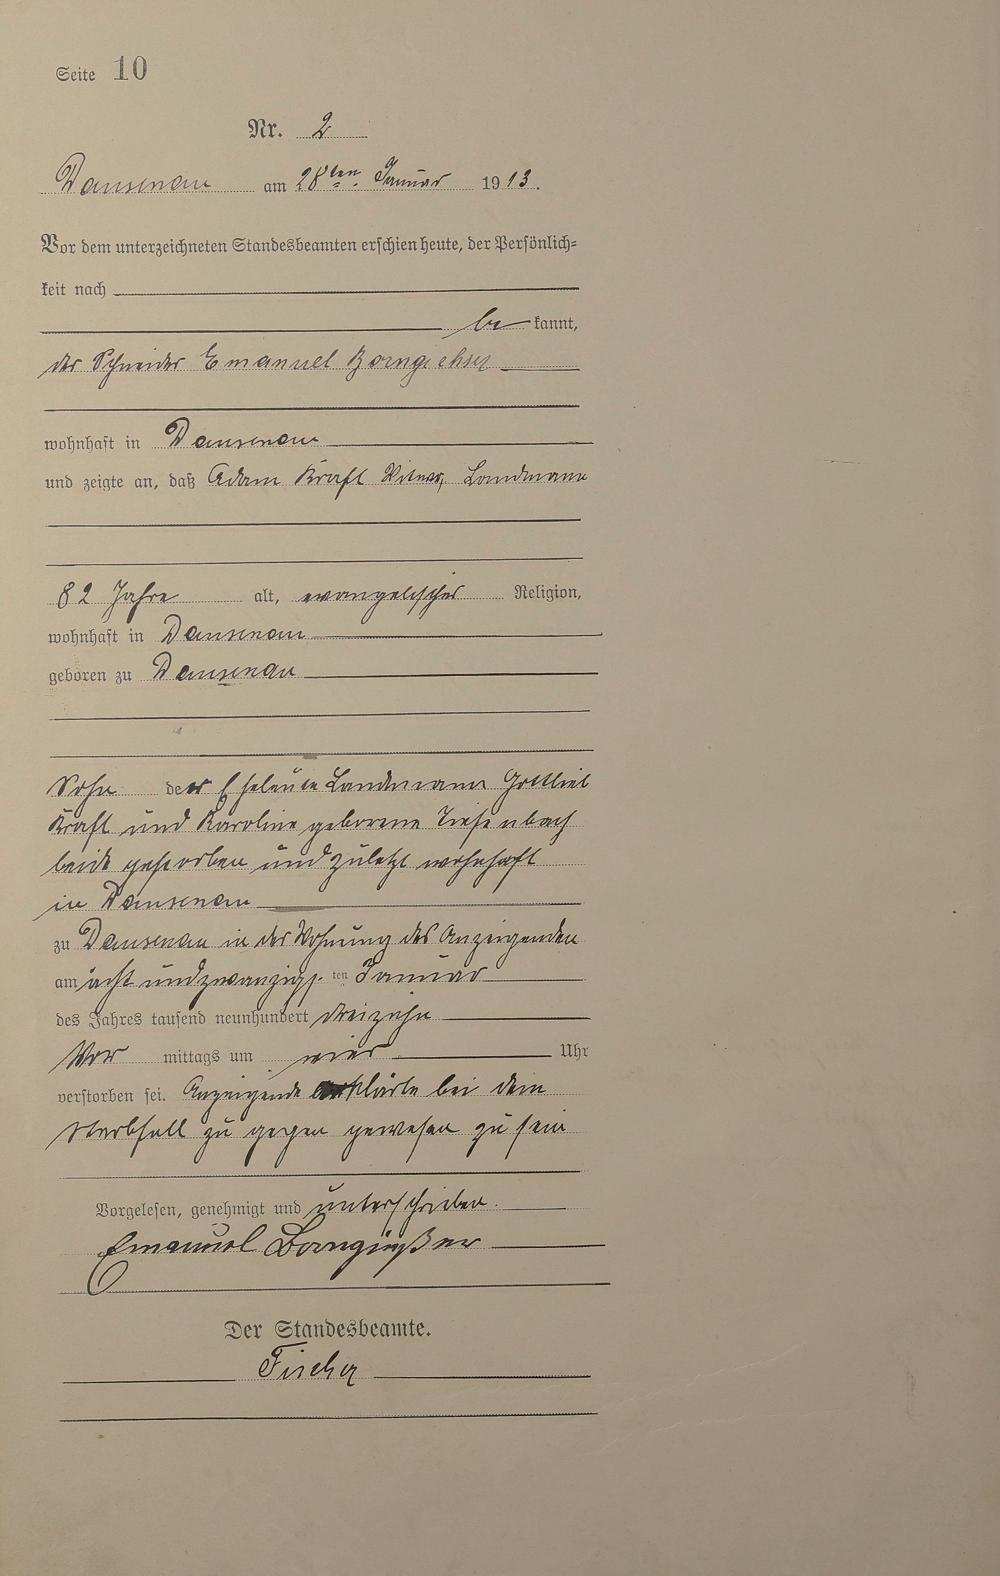 Seite 10
Nr. 2
Dausenau am 28ten Januar 1913.
Vor dem unterzeichneten Standesbeamten erschien heute, der Persönlich-
keit nach
be kannt,
der Schneider Emanuel
wohnhaft in Dausenau
und zeigte an, daß Adam Kraft Witwer, Landmann
82 Jahre alt, evangelischer Religion,
wohnhaft in Dausenau
geboren zu Dausenau
Sohn der Eheleute Landmann Gottlieb
Kraft und Karoline geborene Tiefenbach
beide gestorben und zuletzt wohnhaft
in Dausenau
zu Dausenau in der Wohnung des Anzeigenden
am acht undzwanzigs. ten Januar
des Jahres tausend neunhundert dreizehn
Vor mittags um vier Uhr
verstorben sei. Anzeigende erklärte bei dem
Sterbfall zu gegen gewesen zu sein
Vorgelesen, genehmigt und unterschrieben.
Emanuel
Der Standesbeamte.
Fischer